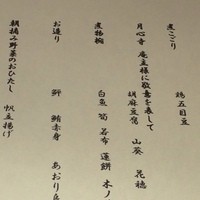 煮こごり　鶏五目豆
月心寺 庵主様に敬意を表して
胡麻豆腐　山葵　花穂
煮物椀
白魚　筍　若布　蓮餅　木ノ
お造り
鮃　鮪赤身　あおり
朝摘み野菜のおひたし　帆立揚げ